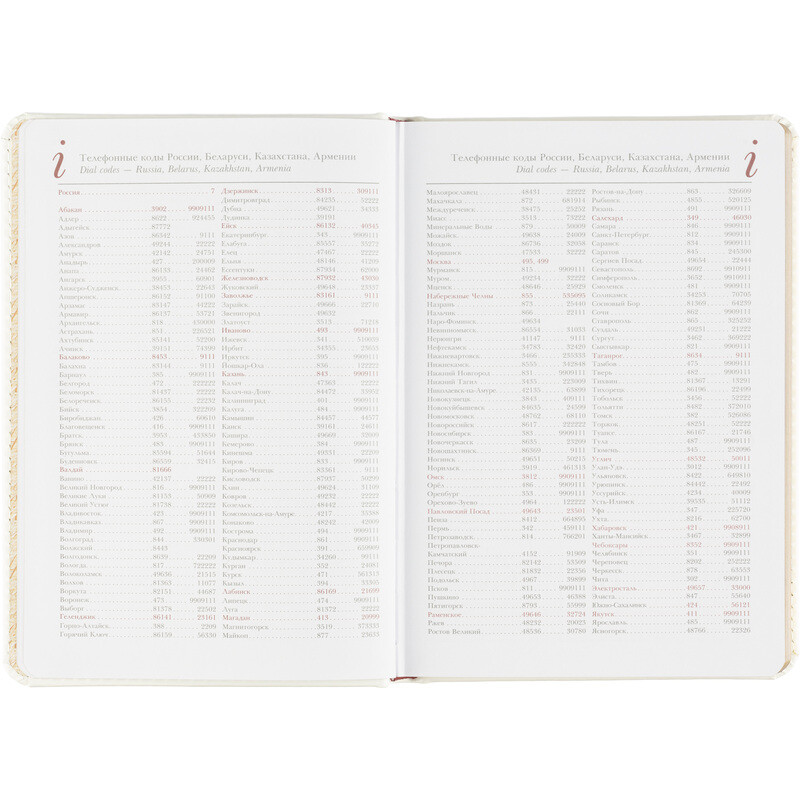 Телефонные коды России, Беларуси, Казахстана, Армении
Dial codes — Russia, Belarus, Kazakhstan, Armenia
Россия 7
Абакан 3902 9909111
Адлер 8622 924455
Адыгейск 87772
Азов 86342 9111
Александров 49244 22222
Амурск 42142 24751
Анадырь 427 299009
Анапа 86133 24462
Ангарск 3955 60901
Анжеро-Судженск 38453 22643
Апшеронск 86152 91100
Арзамас 83147 44222
Армавир 86137 53721
Архангельск 818 450000
Астрахань 851 226521
Ахтубинск 85141 52200
Ачинск 39151 74399
Балаково 8453 9111
Балахна 83144 9111
Барнаул 385 9909111
Белгород 472 222222
Беломорск 81437 22222
Белореченск 86155 22232
Бийск 3854 322200
Биробиджан 426 60610
Благовещенск 416 9909111
Братск 3953 413850
Брянск 483 9909111
Бугульма 85594 51644
Будённовск 86559 42415
Валдай 81666
Ванино 42137 22222
Великий Новгород 816 9909111
Великие Луки 81153 50909
Великий Устюг 81738 22222
Владивосток 423 9909111
Владикавказ 867 9909111
Владимир 492 9909111
Волгоград 844 330301
Волжский 8443
Вологодинск 8639 22209
Вологда 817 722222
Волоколамск 49636 21515
Волхов 81363 11077
Воркута 82151 44687
Воронеж 473 9909111
Выборг 81378 22502
Геленджик 86141 23161
Горно-Алтайск 388 2209
Горячий Ключ 86159 56330
Дзержинск 8313 309111
Димитровград 84235 52222
Дубна 49621 34333
Дудинка 39191
Ейск 86132 40345
Екатеринбург 343 9909111
Елабуга 85557 35271
Елец 47467 22222
Ельня 48146 41209
Ессентуки 87934 62900
Железноводск 87932 43030
Жуковский 49648 23337
Заволжье 83161 9111
Зарайск 49666 22710
Звенигород 49632
Златоуст 3513 71218
Иваново 493 9909111
Ижевск 341 510800
Ирбит 34355 23633
Иркутск 395 9909111
Йошкар-Ола 836 122222
Казань 843 9909111
Калач 47363 22222
Калач-на-Дону 84472 33992
Калининград 401 9909111
Калуга 484 9909111
Камышин 84457 44577
Канск 39161 24611
Кашира 49669 32000
Кемерово 384 9909111
Кинешма 49331 22200
Киров 833 9909111
Кирово-Чепецк 83361 9111
Кисловодск 87937 50299
Клин 49624 31109
Ковров 49232 22222
Козельск 48442 22222
Комсомольск-на-Амуре 4217 9909111
Конаково 48242 42000
Кострома 494 9909111
Краснодар 861 9909111
Красноярск 391 650009
Кудымкар 34260 99111
Курган 352 24001
Курск 471 561512
Кызыл 394 33305
Лабинск 86169 21699
Липецк 474 9909111
Луга 81372 22222
Магадан 413 20999
Магнитогорск 3519 373333
Майкоп 877 23633
Телефонные коды России, Беларуси, Казахстана, Армении
Dial codes — Russia, Belarus, Kazakhstan, Armenia
Малоярославец 48431 22222
Махачкала 872 681914
Междуреченск 38475 25252
Миасс 3513 73222
Минеральные Воды 879 50009
Можайск 49638 24009
Моздок 86736 32058
Моршанск 47533 32222
Москва 495, 499
Мурманск 815 9909111
Муром 49234 32222
Мценск 48646 25920
Набережные Челны 855 535095
Назрань 873 25440
Нальчик 866 22111
Наро-Фоминск 49634
Невинномысск 86554 31033
Нерюнгри 41147 9111
Нефтекамск 34783 32420
Нижневартовск 3466 235333
Нижнекамск 8555 342848
Нижний Новгород 831 9909111
Нижний Тагил 3435 223000
Николаевск-на-Амуре 42135 63899
Новокузнецк 3843 109111
Новокуйбышевск 84635 24399
Новомосковск 48762 68110
Новороссийск 8617 222222
Новосибирск 383 9909111
Новочеркасск 8635 23299
Новошахтинск 86369 9111
Ногинск 49651 50215
Норильск 3919 461313
Омск 3812 9909111
Орёл 486 9909111
Оренбург 353 9909111
Орехово-Зуево 4964 122222
Павловский Посад 49643 23501
Пенза 8412 664895
Пермь 342 459111
Петрозаводск 814 766201
Петропавловск-
Камчатский 4152 91909
Печора 82142 33509
Плесецк 81832 22256
Подольск 4967 30899
Псков 811 9909111
Пушкино 49653 46388
Пятигорск 8793 55999
Раменское 49646 32724
Ржев 48232 20023
Ростов Великий 48536 30780
Ростов-на-Дону 863 326600
Рыбинск 4855 520125
Рязань 491 9909111
Салехард 349 46030
Самара 846 9909111
Санкт-Петербург 812 9909111
Саранск 834 9909111
Саратов 845 245300
Сергиев Посад 49654 22444
Севастополь 8692 9910911
Симферополь 3652 9909111
Смоленск 481 9909111
Соликамск 34253 70705
Сосновый Бор 81369 64239
Сочи 862 9909111
Ставрополь 865 325252
Суздаль 49231 21222
Сургут 3462 369222
Сыктывкар 821 9909111
Таганрог 8634 9111
Тамбов 475 9909111
Тверь 482 9909111
Тихвин 81367 13291
Тихорецк 86196 22499
Тобольск 3456 52222
Тольятти 8482 372010
Томск 382 526086
Торжок 48251 52222
Туапсе 86167 21746
Тула 487 9909111
Тюмень 345 252096
Углич 48532 50011
Улан-Удэ 3012 9909111
Ульяновск 8422 649810
Урюпинск 84442 22492
Уссурийск 4234 40609
Усть-Илимск 39535 51112
Уфа 347 225720
Ухта 8216 62700
Хабаровск 421 9909911
Ханты-Мансийск 3467 32899
Чебоксары 8352 9909111
Челябинск 351 9909111
Череповец 8202 252222
Черкесск 878 63555
Чита 302 9909111
Электросталь 49657 33000
Элиста 847 55640
Южно-Сахалинск 424 56121
Якутск 411 9909111
Ярославль 485 9909111
Ясногорск 48766 22326